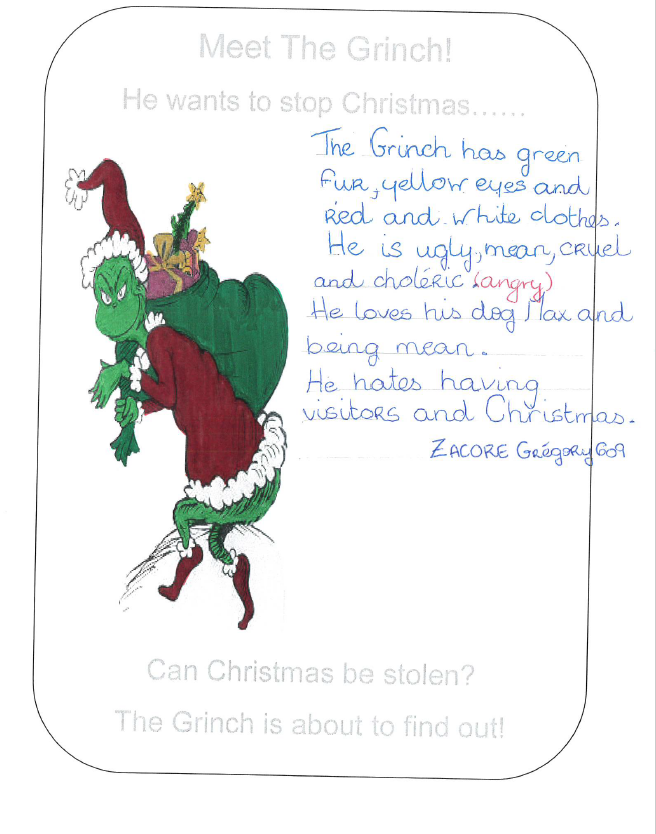 Meet The Grinch!
He wants to stop Christmas......
The Grinch has green
fur, yellow eyes and
red and white clothes.
He is ugly, mean, cruel
and choléric (angry)
He loves his dog Max and
being mean.
He hates having
visitors and Christmas.
ZACORE Grégory 609
Can Christmas be stolen?
The Grinch is about to find out!